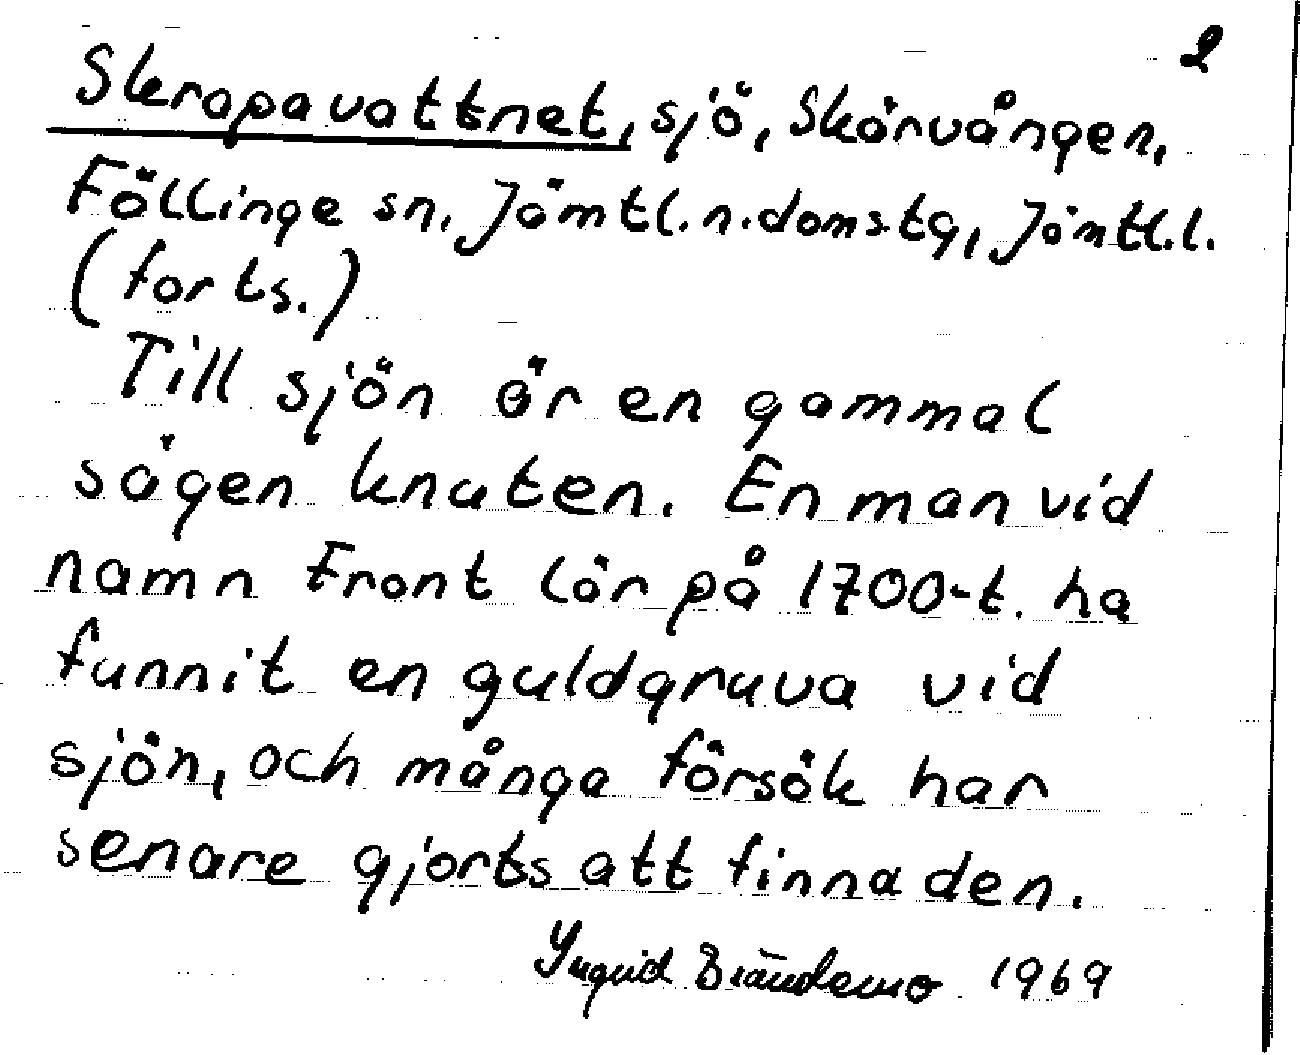 2
Skrapavattnet, sjö, Skärvången,
Föllinge sn, Jämtl.n.domstg, Jämtl.l.
(forts.)
Till sjön är en gammal
sägen knuten. En man vid
namn Front lär på 1700-t. ha
funnit en guldgruva vid
sjön, och många försök har
senare gjorts att finna den.
Yngvid Brändemo 1969